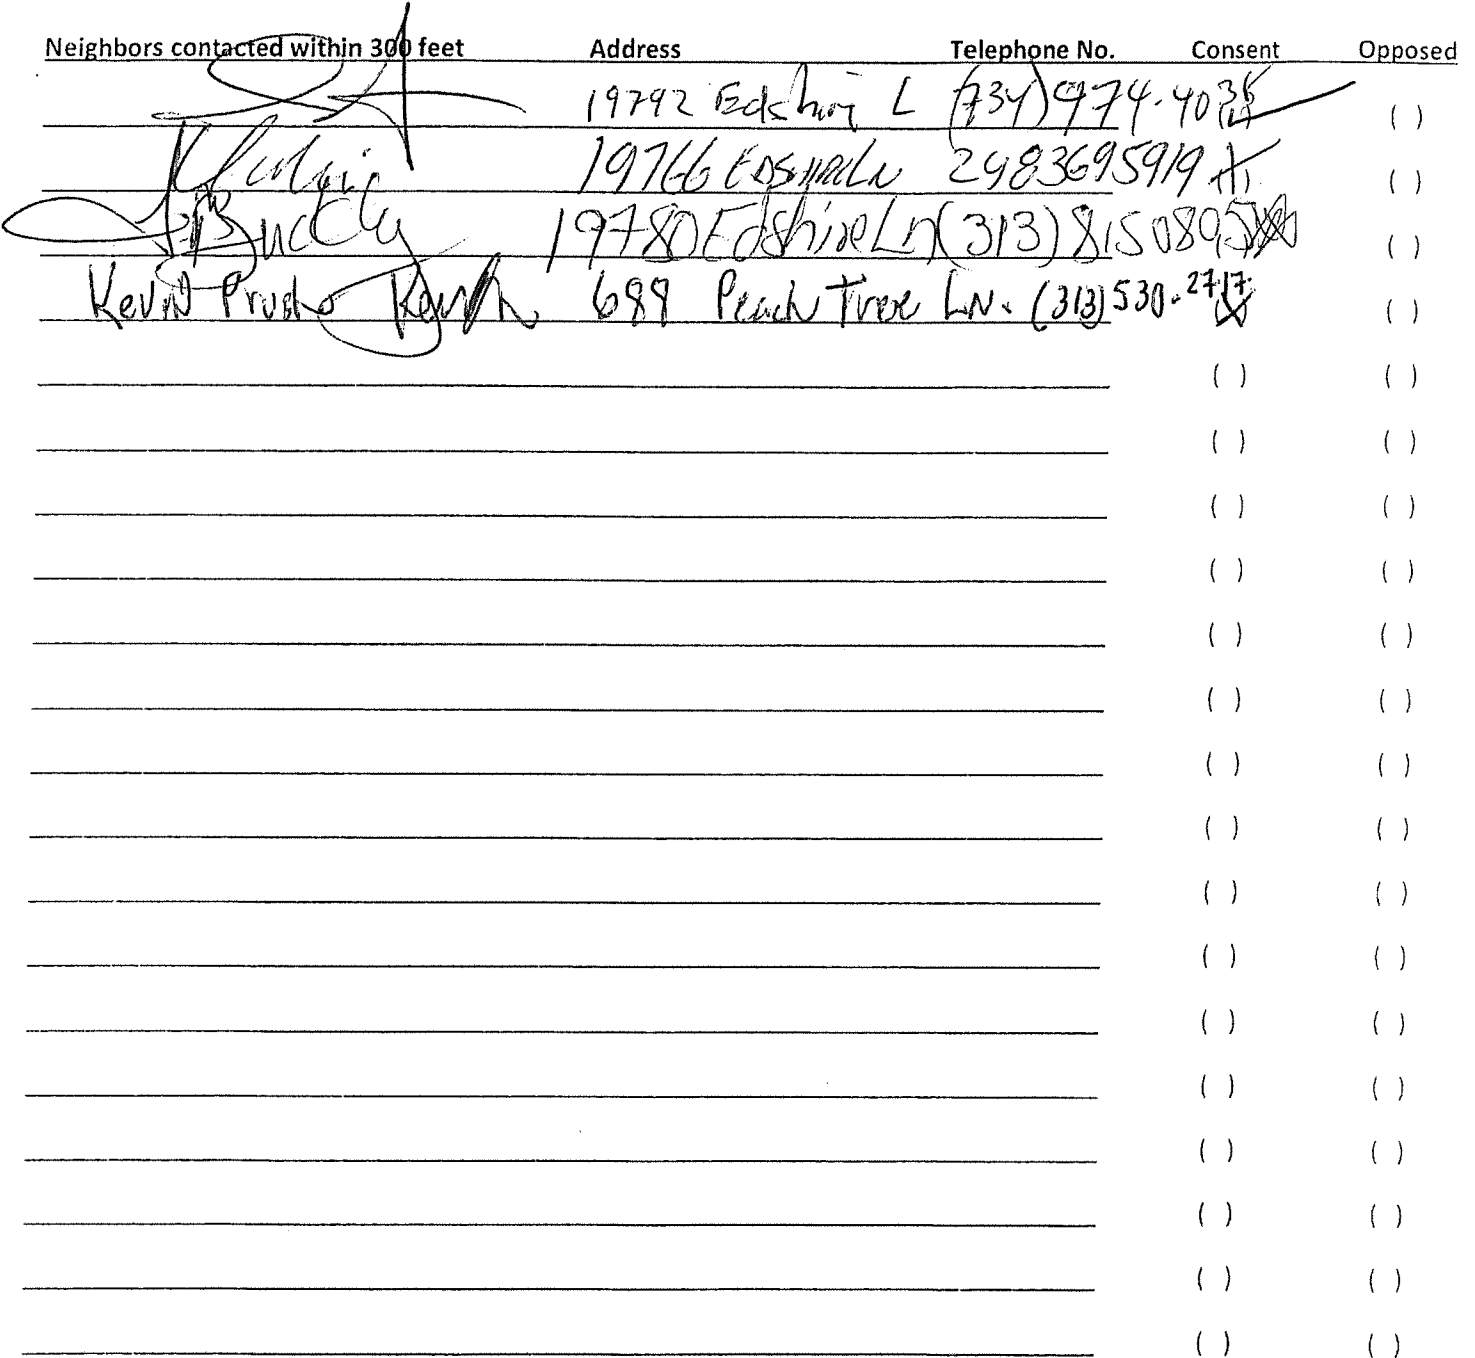 Neighbors contacted within 300 feet Address Telephone No. Consent Opposed
19792 Edshire L (734) 974-4036 ( )
19766 Edshire Ln 2483695919 ( )
19780 Edshire Ln (313) 8150895 ( )
Kevin 688 Peach Tree LN. (313) 530-2717 ( )
( ) ( )
( ) ( )
( ) ( )
( ) ( )
( ) ( )
( ) ( )
( ) ( )
( ) ( )
( ) ( )
( ) ( )
( ) ( )
( ) ( )
( ) ( )
( ) ( )
( ) ( )
( ) ( )